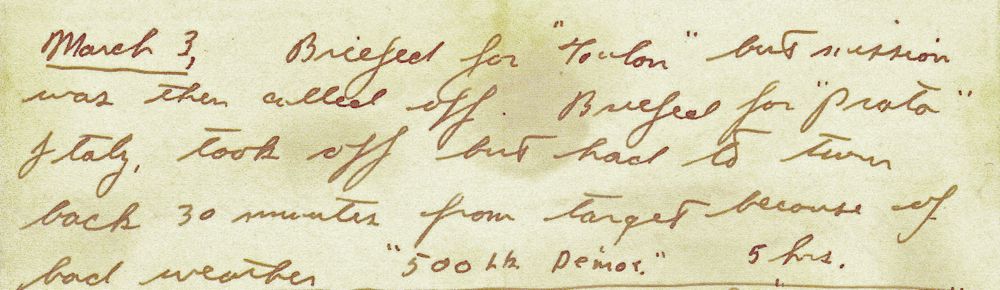 March 3, Briefed for "Toulon" but mission
was then called off. Briefed for "Prato"
Italy, took off but had to turn
back 30 minutes from target because of
bad weather "500 lb Demos." 5 hrs.